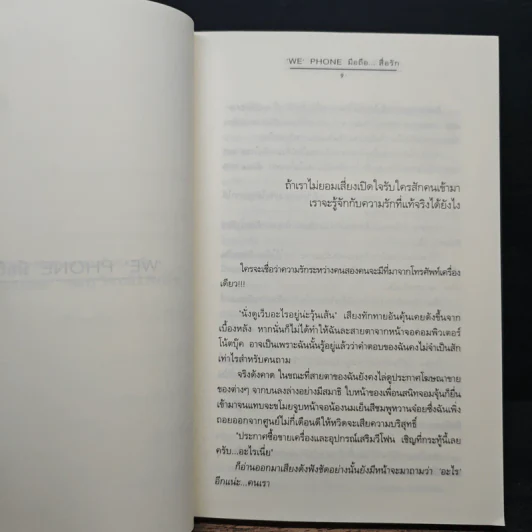 'WE' PHONE มือถือ...สื่อรัก
ถ้าเราไม่ยอมเสี่ยงเปิดใจรับใครสักคนเข้ามา
เราจะรู้จักกับความรักที่แท้จริงได้ยังไง
ใครจะเชื่อว่าความรักระหว่างคนสองคนจะมีที่มาจากโทรศัพท์เครื่อง
เดียว!!!
"นั่งดูเว็บอะไรอยู่น่ะวุ้นเส้น" เสียงทักทายอันคุ้นเคยดังขึ้นจาก
เบื้องหลัง หากนั่นก็ไม่ได้ทำให้ฉันละสายตาจากหน้าจอคอมพิวเตอร์
โน้ตบุ๊ค อาจเป็นเพราะฉันนั้นรู้อยู่แล้วว่าคำตอบของฉันคงไม่จำเป็นสัก
เท่าไรสำหรับคนถาม
จริงดังคาด ในขณะที่สายตาของฉันยังคงไล่ดูประกาศโฆษณาขาย
ของต่างๆ จากบนลงล่างอย่างมีสมาธิ ใบหน้าของเพื่อนสนิทจอมจุ้นก็ยื่น
เข้ามาจนแทบจะขโมยจูบหน้าจอน้องนมเย็นสีชมพูหวานจ๋อยซึ่งฉันเพิ่ง
ถอยออกจากศูนย์ไม่กี่เดือนดีให้หวิดจะเสียความบริสุทธิ์
"ประกาศซื้อขายเครื่องและอุปกรณ์เสริมวีโฟน เชิญที่กระทู้นี้เลย
ครับ...อะไรเนี่ย"
ก็อ่านออกมาเสียงดังฟังชัดอย่างนั้นยังมีหน้าจะมาถามว่า 'อะไร'
อีกแน่ะ...คนเรา